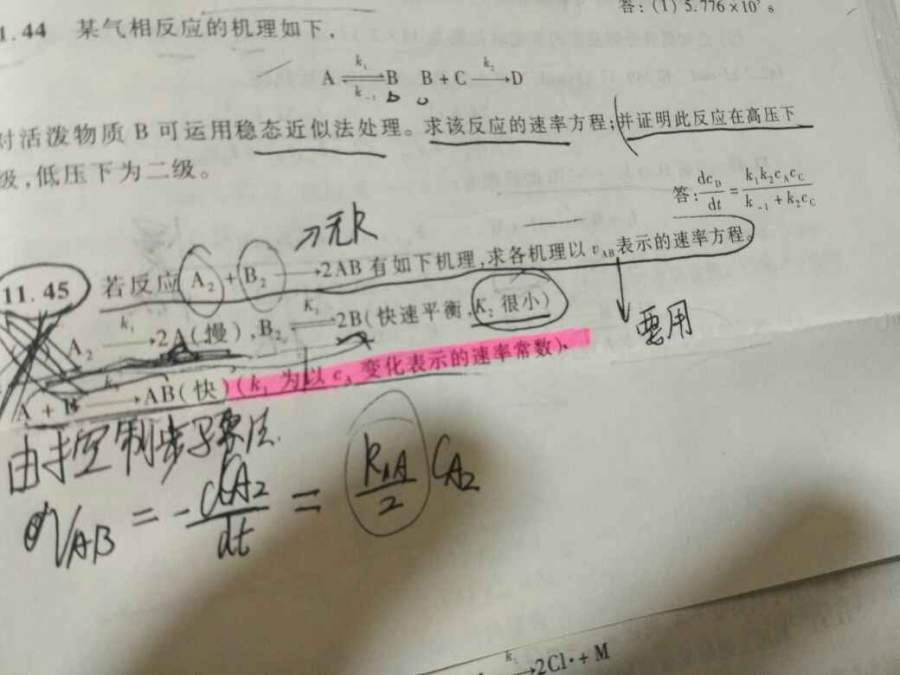 答：(1) 5.776×10⁷ s
1.44 某气相反应的机理如下，
A ⇌ B B + C → D
k₁ k₋₁ k₂
对活泼物质 B 可运用稳态近似法处理。求该反应的速率方程；并证明此反应在高压下
级，低压下为二级。
答：dc_D/dt = k₁k₂c_Ac_C/(k₋₁ + k₂c_C)
→无k
11.45 若反应 A₂ + B₂ → 2AB 有如下机理，求各机理以 v_AB 表示的速率方程。
A₂ →(k₁) 2A(慢)，B₂ ⇌(K₂) 2B(快速平衡，K₂ 很小)
要用
A + B → AB(快)(k₁ 为以 c_A 变化表示的速率常数)。
由控制步骤法
v_AB = -dC_A₂/dt = k₁A/2 C_A₂
k₂ → 2Cl· + M